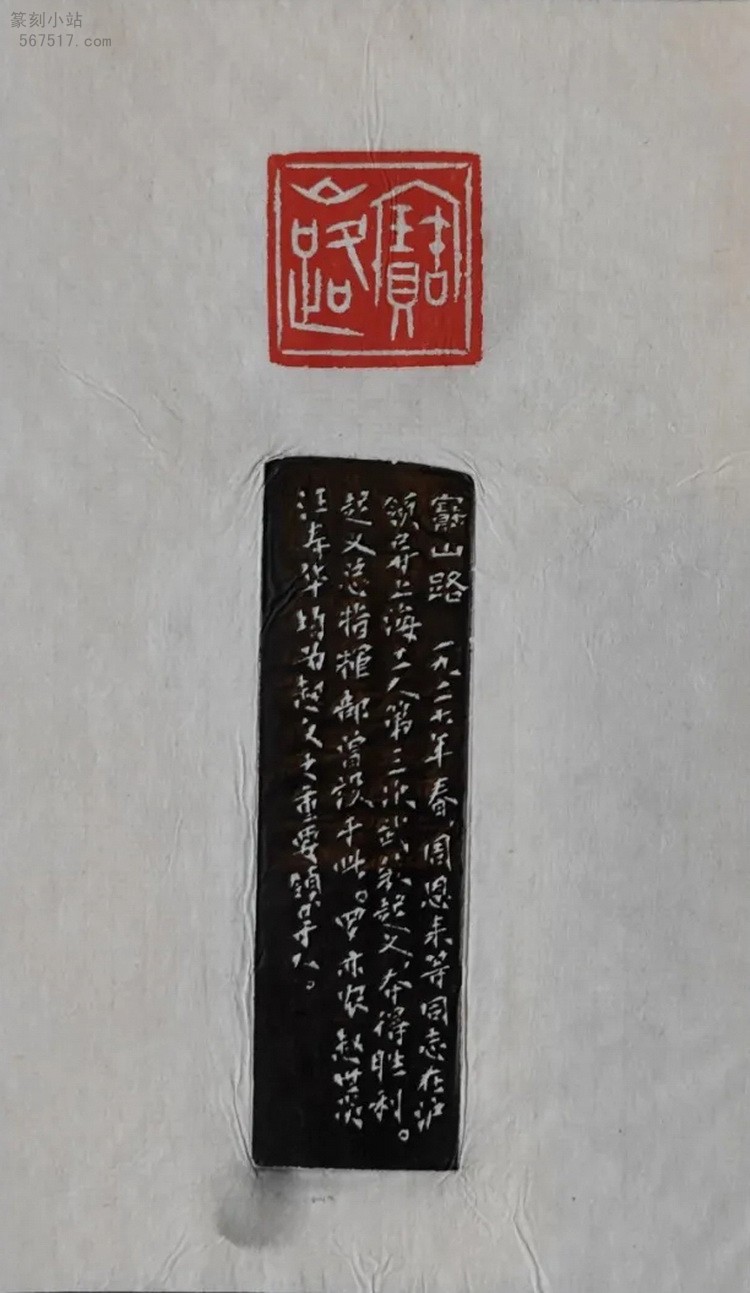 篆刻小站
567517.com
寶山路
寶山路 一九二七年春，周恩来等同志在沪
领导上海工人第三次武装起义，夺得胜利。
起义总指挥部曾设于此。罗亦农赵世炎
汪寿华均为起义之重要领导人。